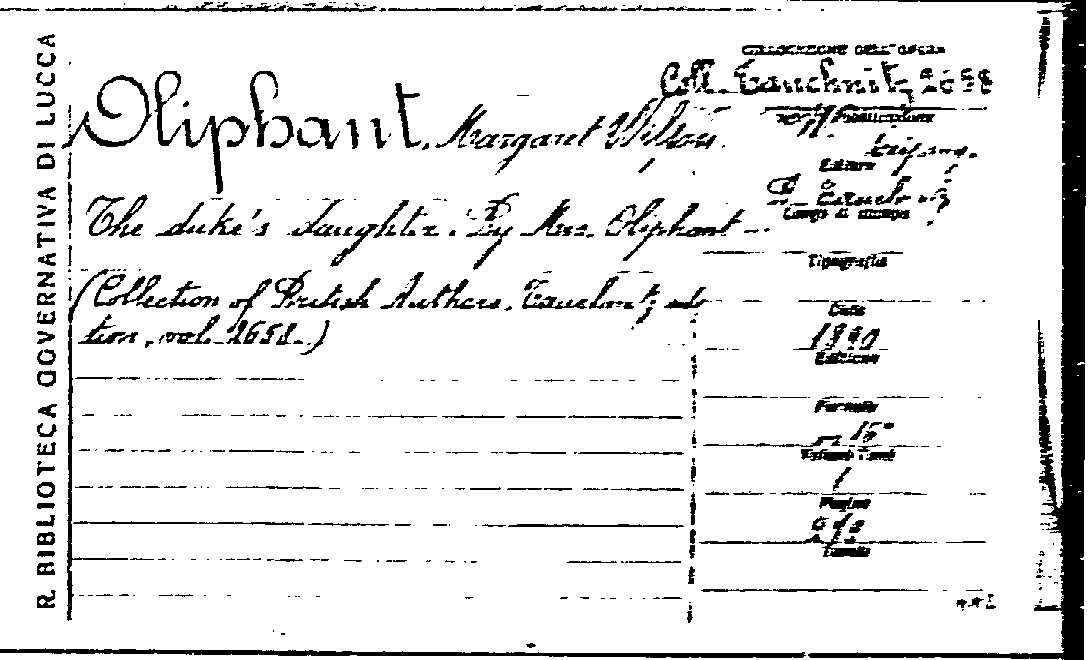 R. BIBLIOTECA GOVERNATIVA DI LUCCA
Oliphant, Margaret Wilson.
The duke's daughter. By Mrs. Oliphant -.
(Collection of British Authors. Tauchnitz edi-
tion, vol. 2658.)
COLLOCAZIONE DELL'OPERA
Coll. Tauchnitz 2658
Pubblicazione
Leipzig.
Editore
B. Tauchnitz
Luogo di stampa
Tipografia
Data
1890
Edizione
Formato
in 16°
Volumi
1
Pagine